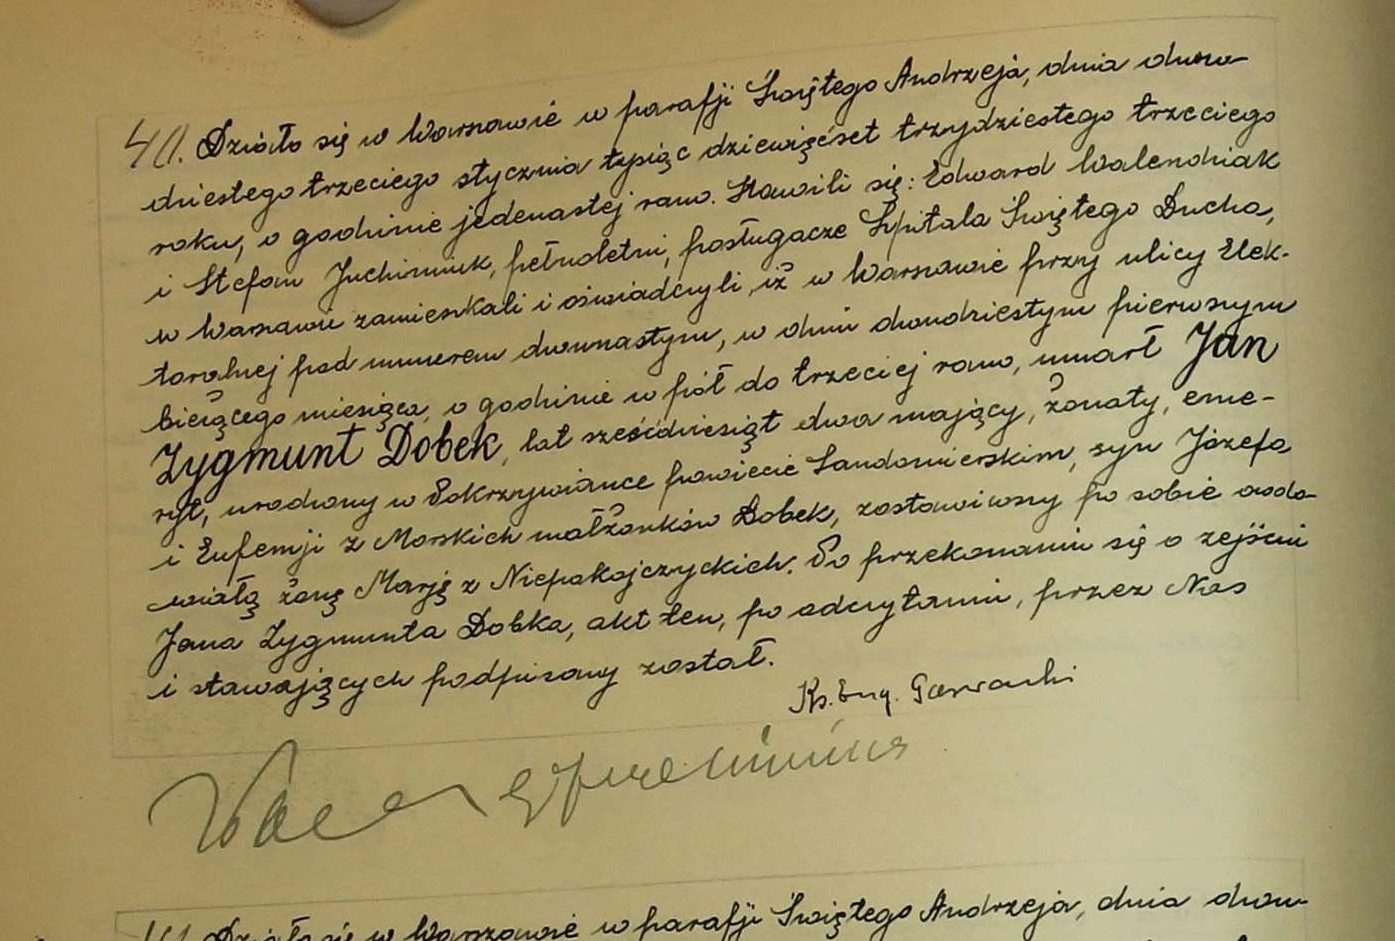 40. Działo się w Warszawie w parafji Świętego Andrzeja, dnia dwu-
dziestego trzeciego stycznia tysiąc dziewięćset trzydziestego trzeciego
roku, o godzinie jedenastej rano. Stawili się: Edward Walendziak
i Stefan Juchimiuk, pełnoletni, posługacze Szpitala Świętego Ducha,
w Warszawie zamieszkali i oświadczyli, iż w Warszawie przy ulicy Elek-
toralnej pod numerem dwunastym, w dniu dwudziestym pierwszym
bieżącego miesiąca, o godzinie w pół do trzeciej rano, umarł Jan
Zygmunt Dobek, lat sześćdziesiąt dwa mający, żonaty, eme-
ryt, urodzony w Pokrzywiance powiecie Sandomierskim, syn Józefa
i Eufemji z Morskich małżonków Dobek, zostawiwszy po sobie owdo-
wiałą żonę Marję z Niepokojczyckich. Po przekonaniu się o zejściu
Jana Zygmunta Dobka, akt ten, po odczytaniu, przez Nas
i stawających podpisany został.
Ks. Eug.
Działo się w Warszawie w parafji Świętego Andrzeja, dnia dwu-